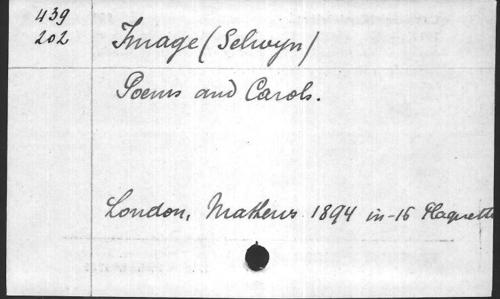 439
202
Image (Selwyn)
Poems and Carols.
London, Mathews 1894 in-16 Plaquette